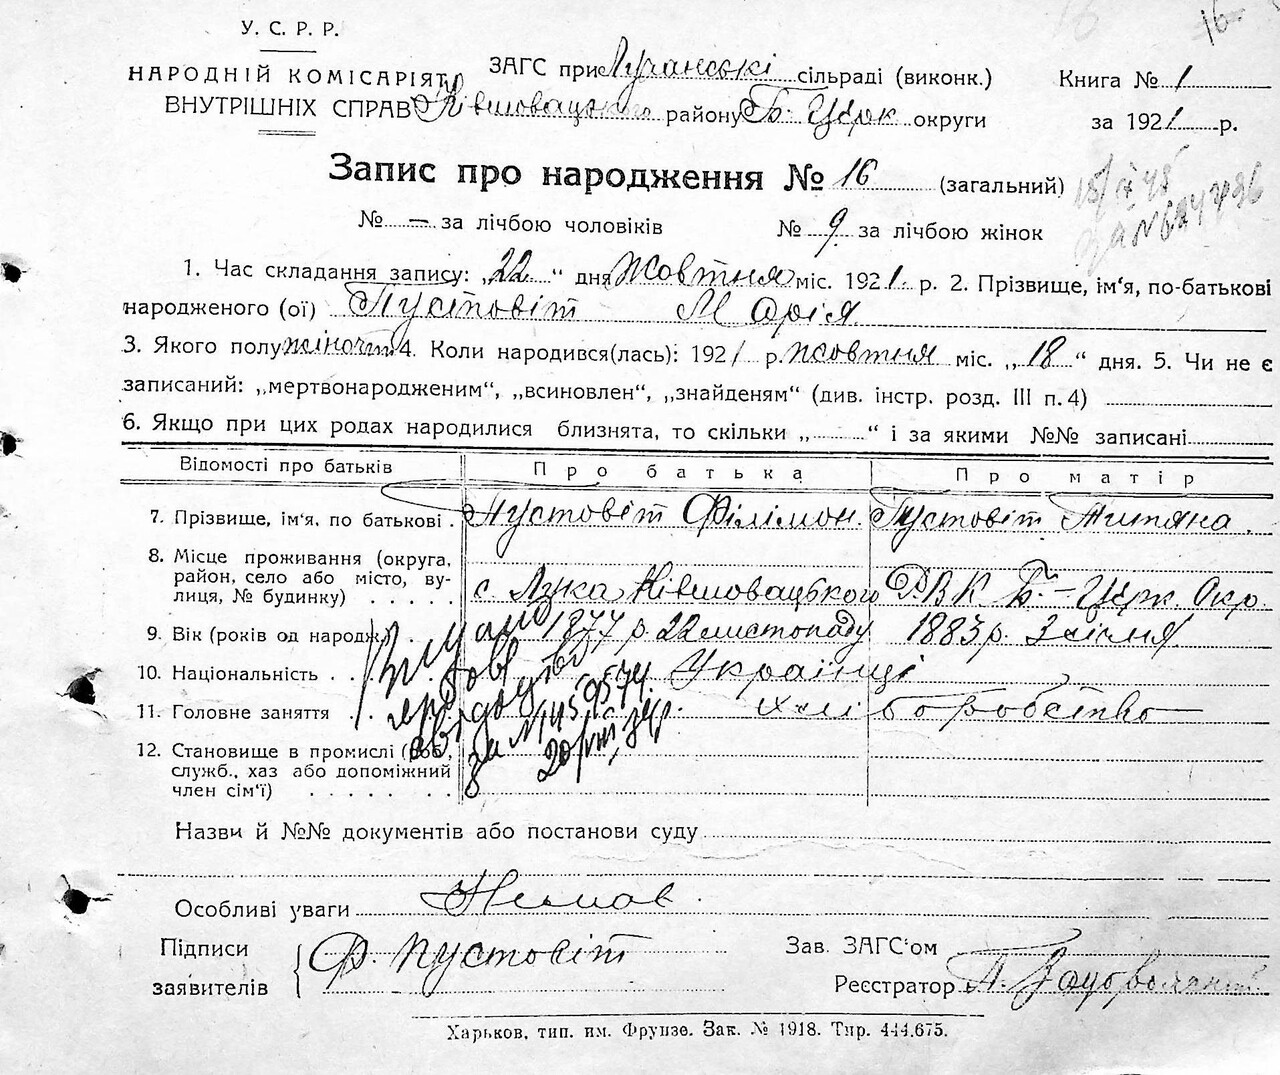 16
У. С. Р. Р.
НАРОДНІЙ КОМІСАРІЯТ
ВНУТРІШНІХ СПРАВ
ЗАГС при Лучанські сільраді (виконк.)
Ківшовацького району Б-Церк округи
Книга № 1
за 1921 р.
Запис про народження № 16 (загальний)
№ — за лічбою чоловіків № 9 за лічбою жінок
1. Час складання запису: „22“ дня Жовтня міс. 1921 р. 2. Прізвище, ім'я, по-батькові
народженого (ої) Пустовіт Марія
3. Якого полу жіночт 4. Коли народився(лась): 1921 р. жовтня міс. „18“ дня. 5. Чи не є
записаний: „мертвонародженим“, „всиновлен“, „знайденям“ (див. інстр. розд. III п. 4)
6. Якщо при цих родах народилися близнята, то скільки „ “ і за якими №№ записані
Відомості про батьків Про батька Про матір
7. Прізвище, ім'я, по батькові . Пустовіт Філімон. Пустовіт Титяна.
8. Місце проживання (округа,
район, село або місто, ву-
лиця, № будинку) . . . . . с. Лука Ківшовацького РВК Б.-Церк. Окр.
9. Вік (років од народж.) 1877 р. 22 листопаду 1883 р. 3 січня
10. Національність . . . Українці
11. Головне заняття . . хліборобство
12. Становище в промислі (роб.,
служб., хаз або допоміжний
член сім'ї) . . . . . . . .
20/VIII
Назви й №№ документів або постанови суду
Особливі уваги Немає
Підписи
заявителів Ф. Пустовіт
Зав. ЗАГС'ом
Реєстратор
Харьков, тип. им. Фрунзе. Зак. № 1918. Тир. 444.675.